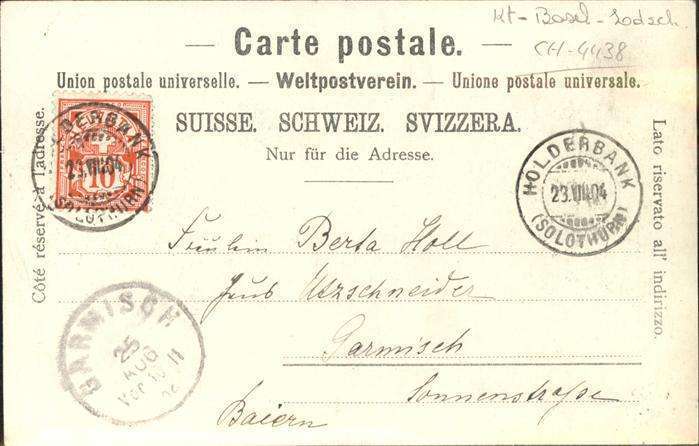 Kt - Basel - Landsch.
CH-4438
— Carte postale. —
Union postale universelle. — Weltpostverein. — Unione postale universale.
SUISSE. SCHWEIZ. SVIZZERA.
Nur für die Adresse.
Côté réservé à l'adresse.
Lato riservato all' indirizzo.
HOLDERBANK
23.VIII.04
(SOLOTHURN)
10
HOLDERBANK
23.VIII.04
(SOLOTHURN)
Fräulein Berta Holl
Haus Utzschneider
Garmisch
Sonnenstraße
Baiern
GARMISCH
25
AUG
VOR 10-11